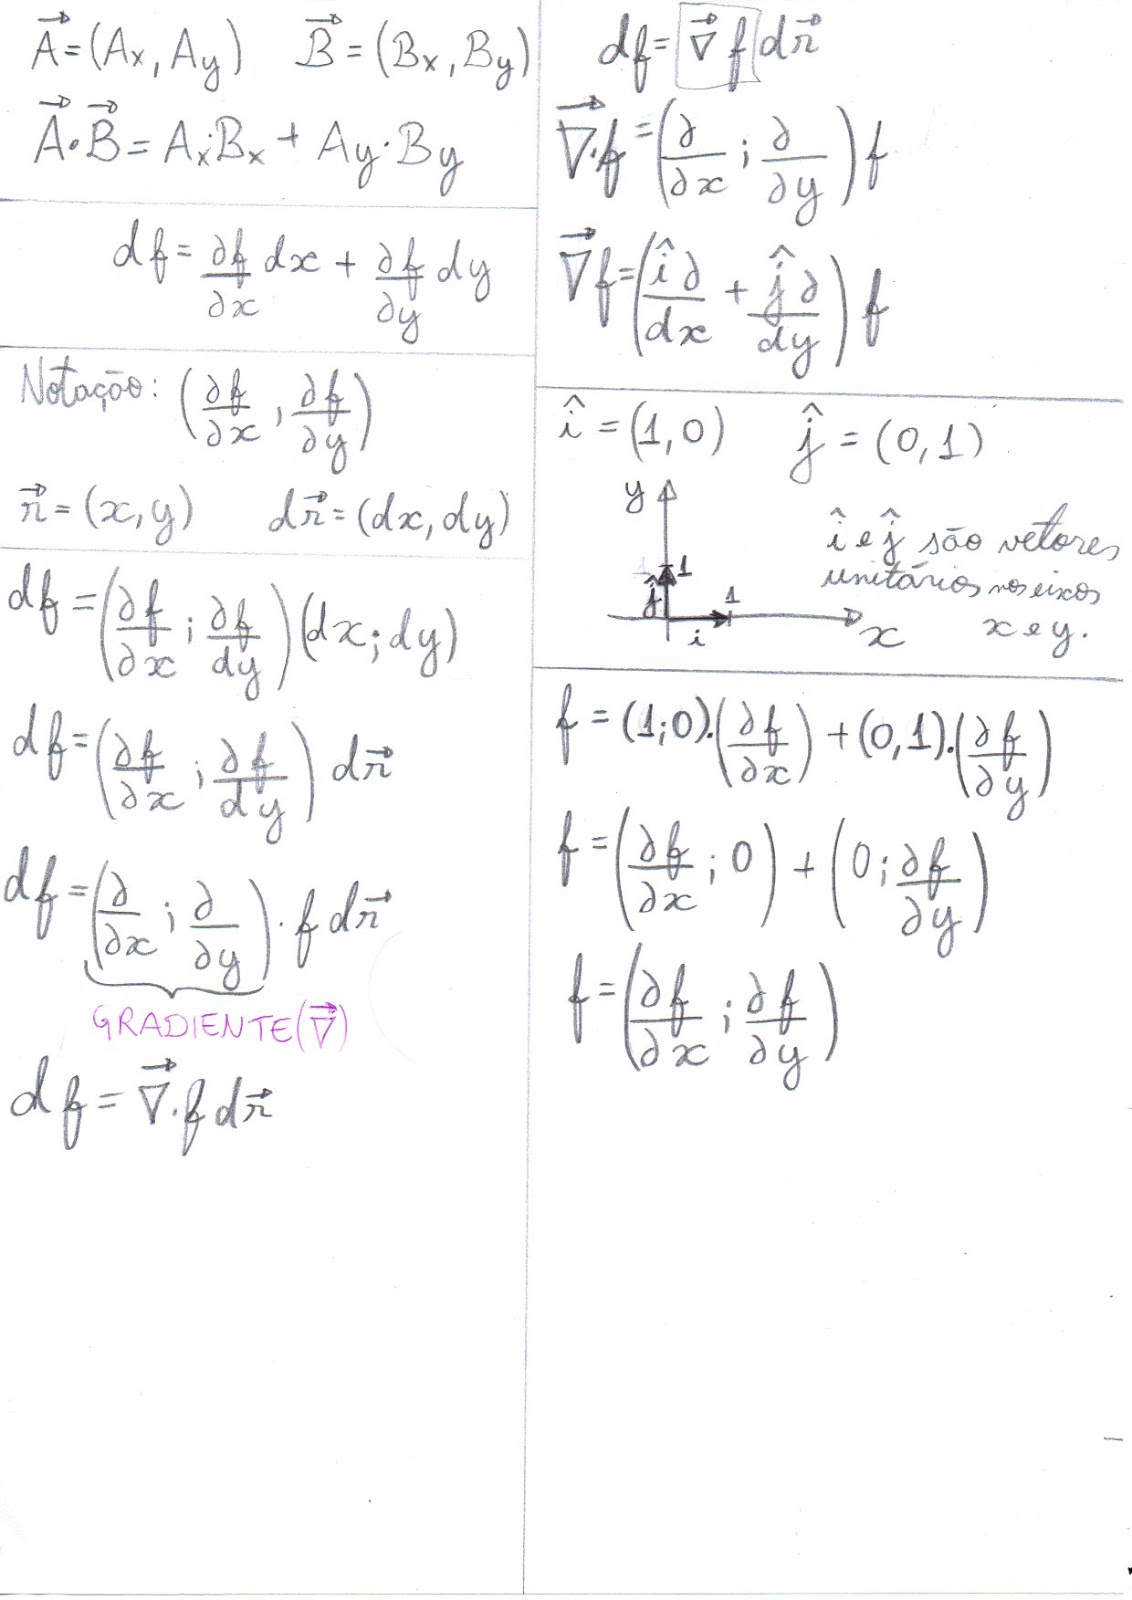 A⃗=(Ax, Ay) B⃗=(Bx, By)
A⃗•B⃗= Ax·Bx + Ay·By
df= ∂f/∂x dx + ∂f/∂y dy
Notação: (∂f/∂x , ∂f/∂y)
r⃗= (x, y) dr⃗=(dx, dy)
df =(∂f/∂x ; ∂f/dy)(dx; dy)
df=(∂f/∂x ; ∂f/dy) dr⃗
df =(∂/∂x ; ∂/∂y)·f dr⃗
GRADIENTE(∇⃗)
df = ∇⃗·f dr⃗
df= ∇⃗ f dr⃗
∇⃗·f=(∂/∂x ; ∂/∂y) f
∇⃗f=(î∂/dx + ĵ∂/dy) f
î =(1,0) ĵ = (0,1)
y
1
ĵ
1
i
x
î e ĵ são vetores
unitários nos eixos
x e y.
f = (1;0).(∂f/∂x) +(0,1).(∂f/∂y)
f =(∂f/∂x ; 0) + (0; ∂f/∂y)
f =(∂f/∂x ; ∂f/∂y)